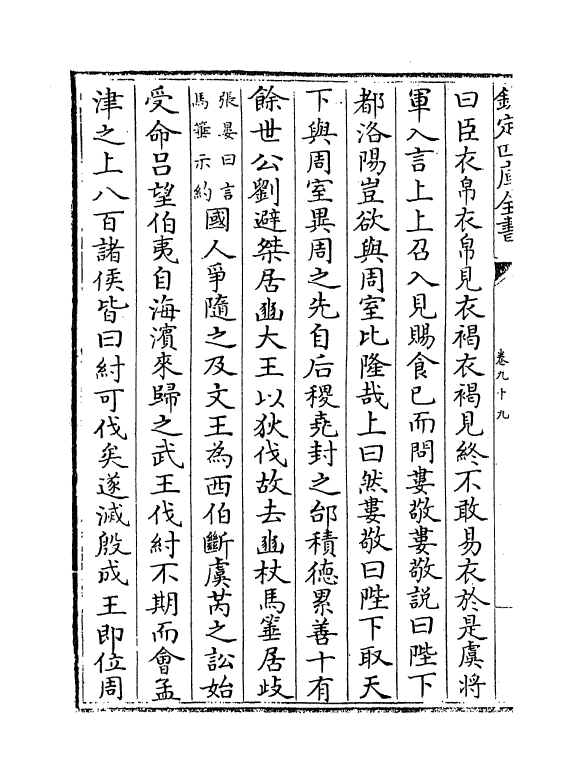 欽定四庫全書
卷九十九
曰臣衣帛衣帛見衣褐衣褐見終不敢易衣於是虞將
軍入言上上召入見賜食已而問婁敬婁敬說曰陛下
都洛陽豈欲與周室比隆哉上曰然婁敬曰陛下取天
下與周室異周之先自后稷堯封之邰積徳累善十有
餘世公劉避桀居豳大王以狄伐故去豳杖馬箠居歧
張晏曰言
馬箠示約
國人爭隨之及文王為西伯斷虞芮之訟始
受命吕望伯夷自海濱來歸之武王伐紂不期而會孟
津之上八百諸侯皆曰紂可伐矣遂滅殷成王即位周